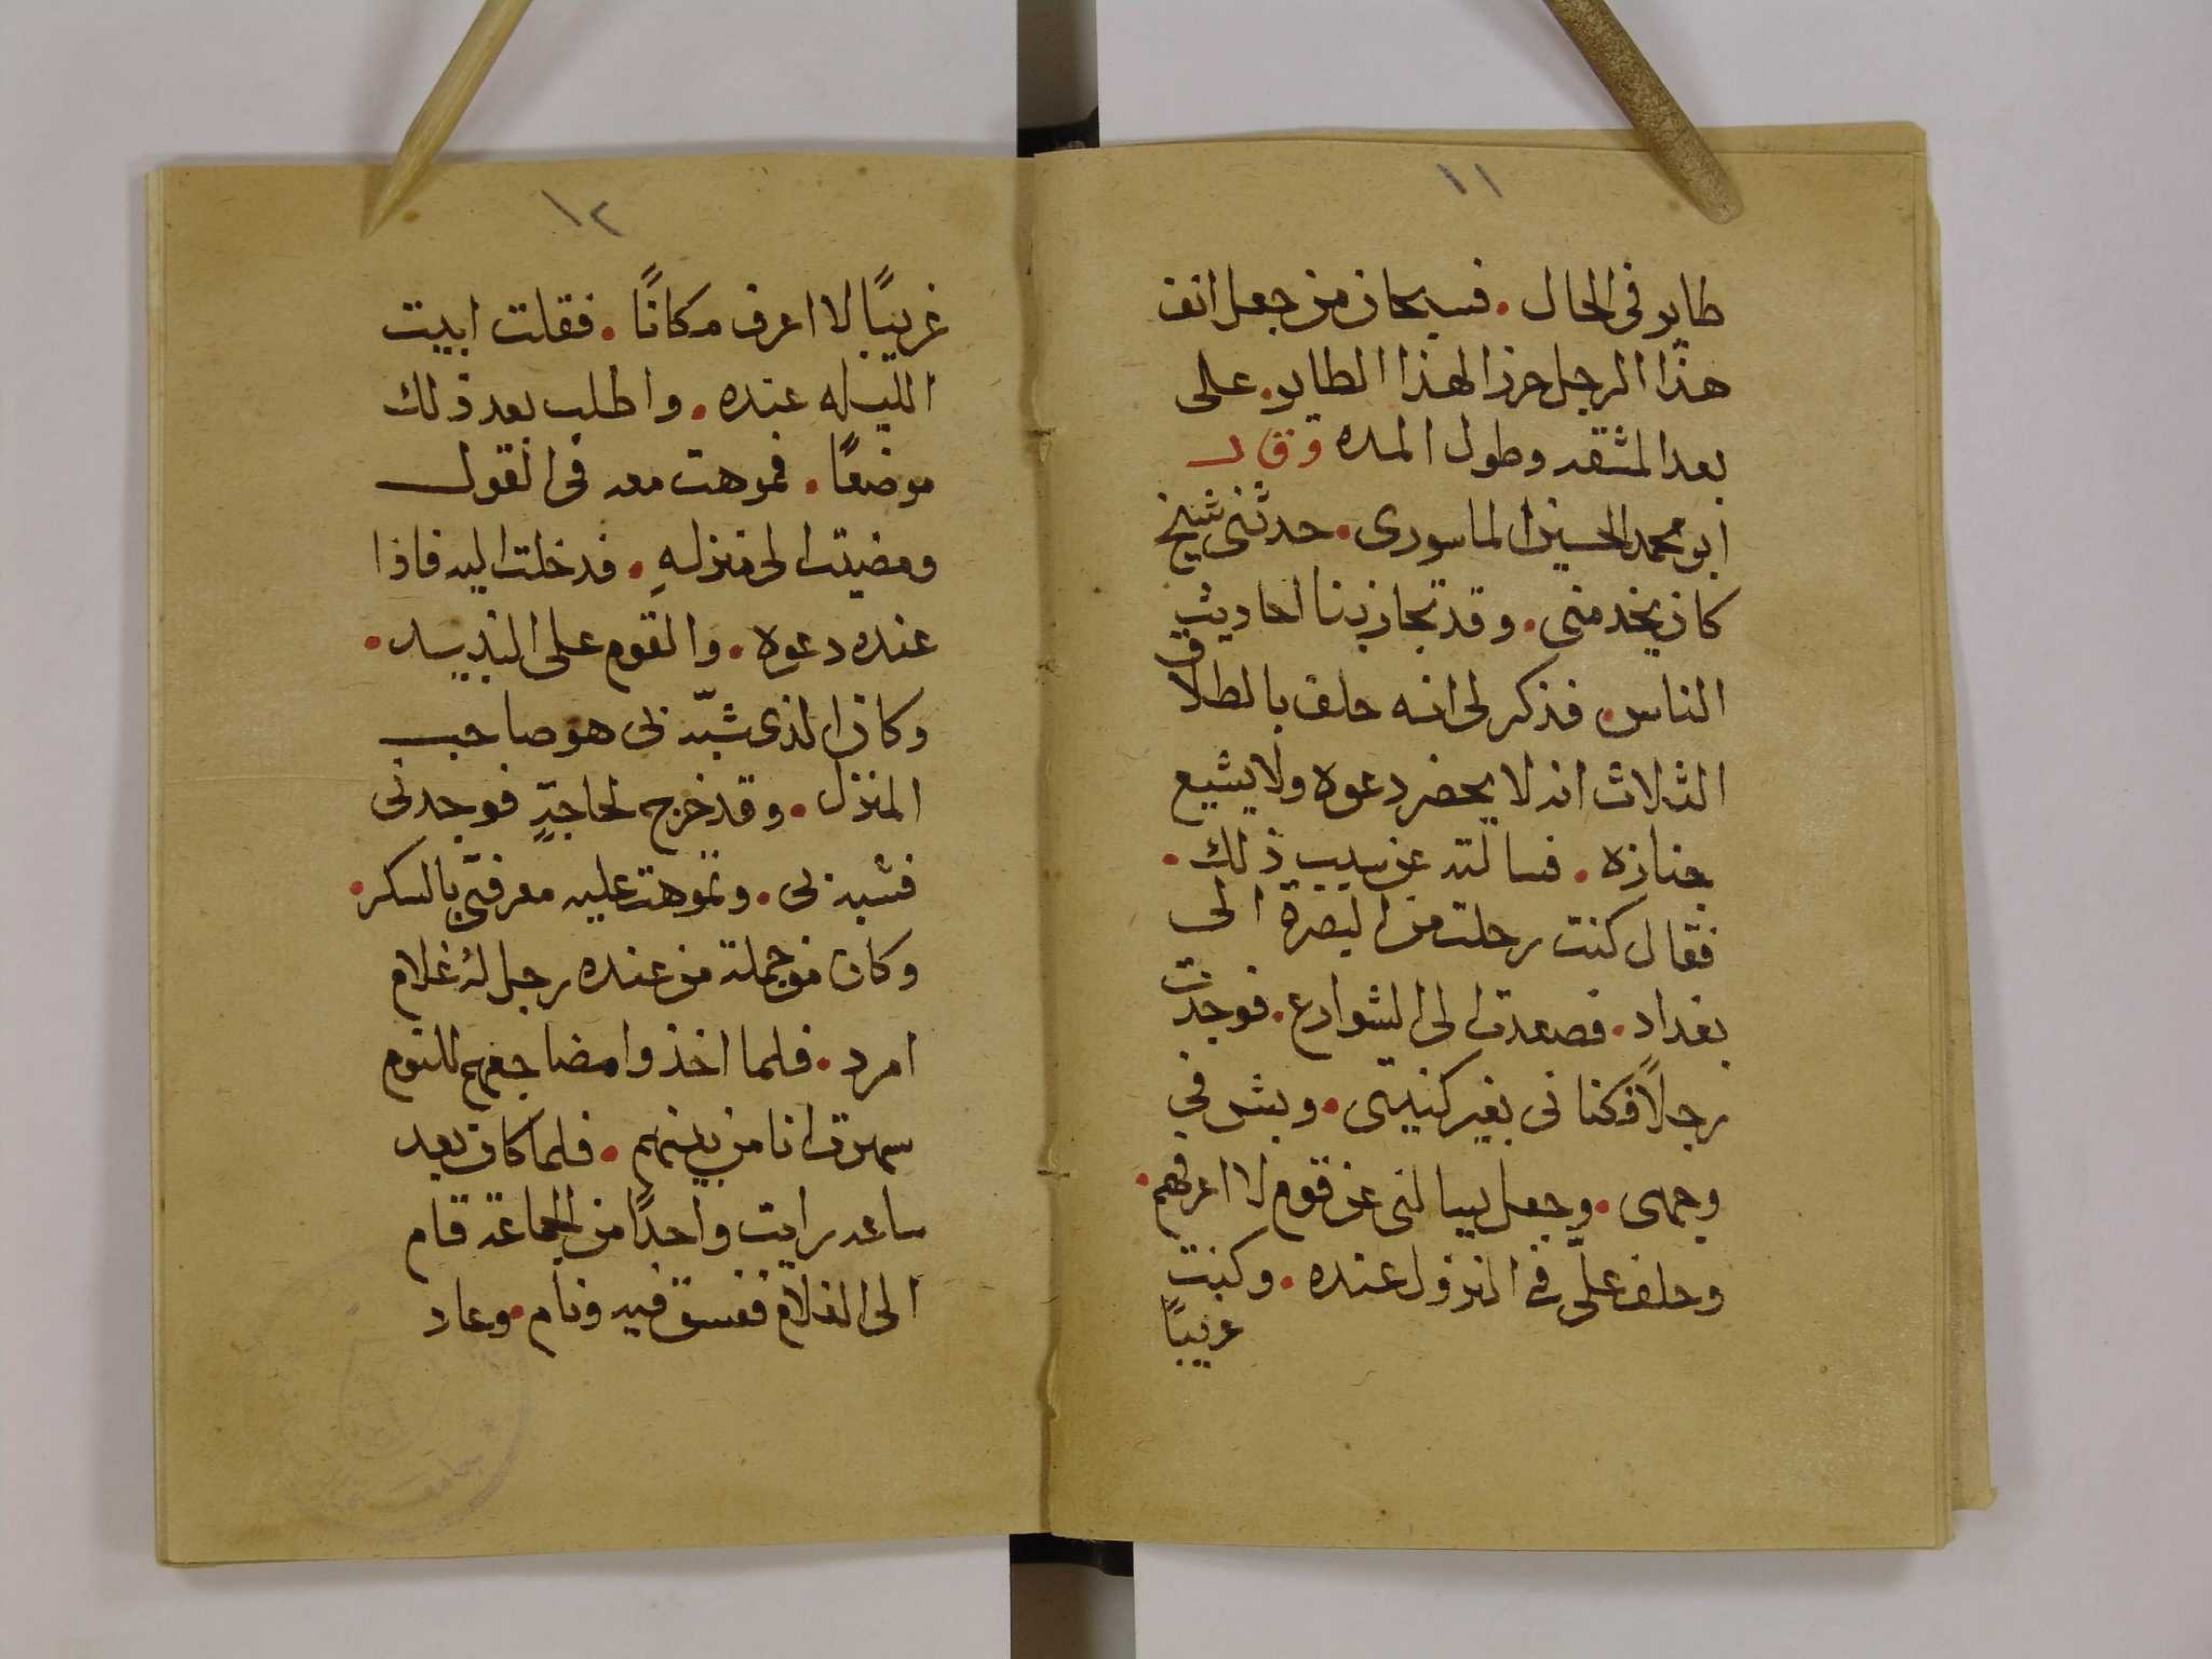 ١١
طاير في الحال . فسبحان من جعل انف
هذا الرجل حرزا لهذا الطاير . على
بعد المشقه وطول المده وقال
ابو محمد الحسين الماسورى . حدثني شيخ
كان يخدمني . وقد تجاذبنا احاديث
الناس . فذكر لى انه حلف بالطلاق
الثلاث انه لا يحضر دعوه ولا يشيع
جنازه . فسالته عن سبب ذلك .
فقال كنت رحلت من البصرة الى
بغداد . فصعدت الى الشوارع . فوجدت
رجلًا فكنانى بغير كنيتى . وبش في
وجهى . وجعل يسالنى عن قوم لا اعرفهم .
وحلف علىّ في النزول عنده . وكنت
غريبًا
١٢
غريبًا لا اعرف مكانًا . فقلت ابيت
الليله عنده . واطلب بعد ذلك
موضعًا . فموهت معه في القول
ومضيت الى منزلهِ . فدخلت اليه فاذا
عنده دعوه . والقوم على النبيد .
وكان الذى شبّه بى هو صاحب
المنزل . وقد خرج لحاجةٍ فوجدنى
فشبه بى . وتموهت عليه معرفتى بالسكر .
وكان من جملة من عنده رجل لهُ غلام
امرد . فلما اخذوا مضاجعهم للنوم
سهرت انا من بينهم . فلما كان بعد
ساعه رايت واحدًا من الجماعة قام
الى الغلام ففسق فيه ونام . وعاد